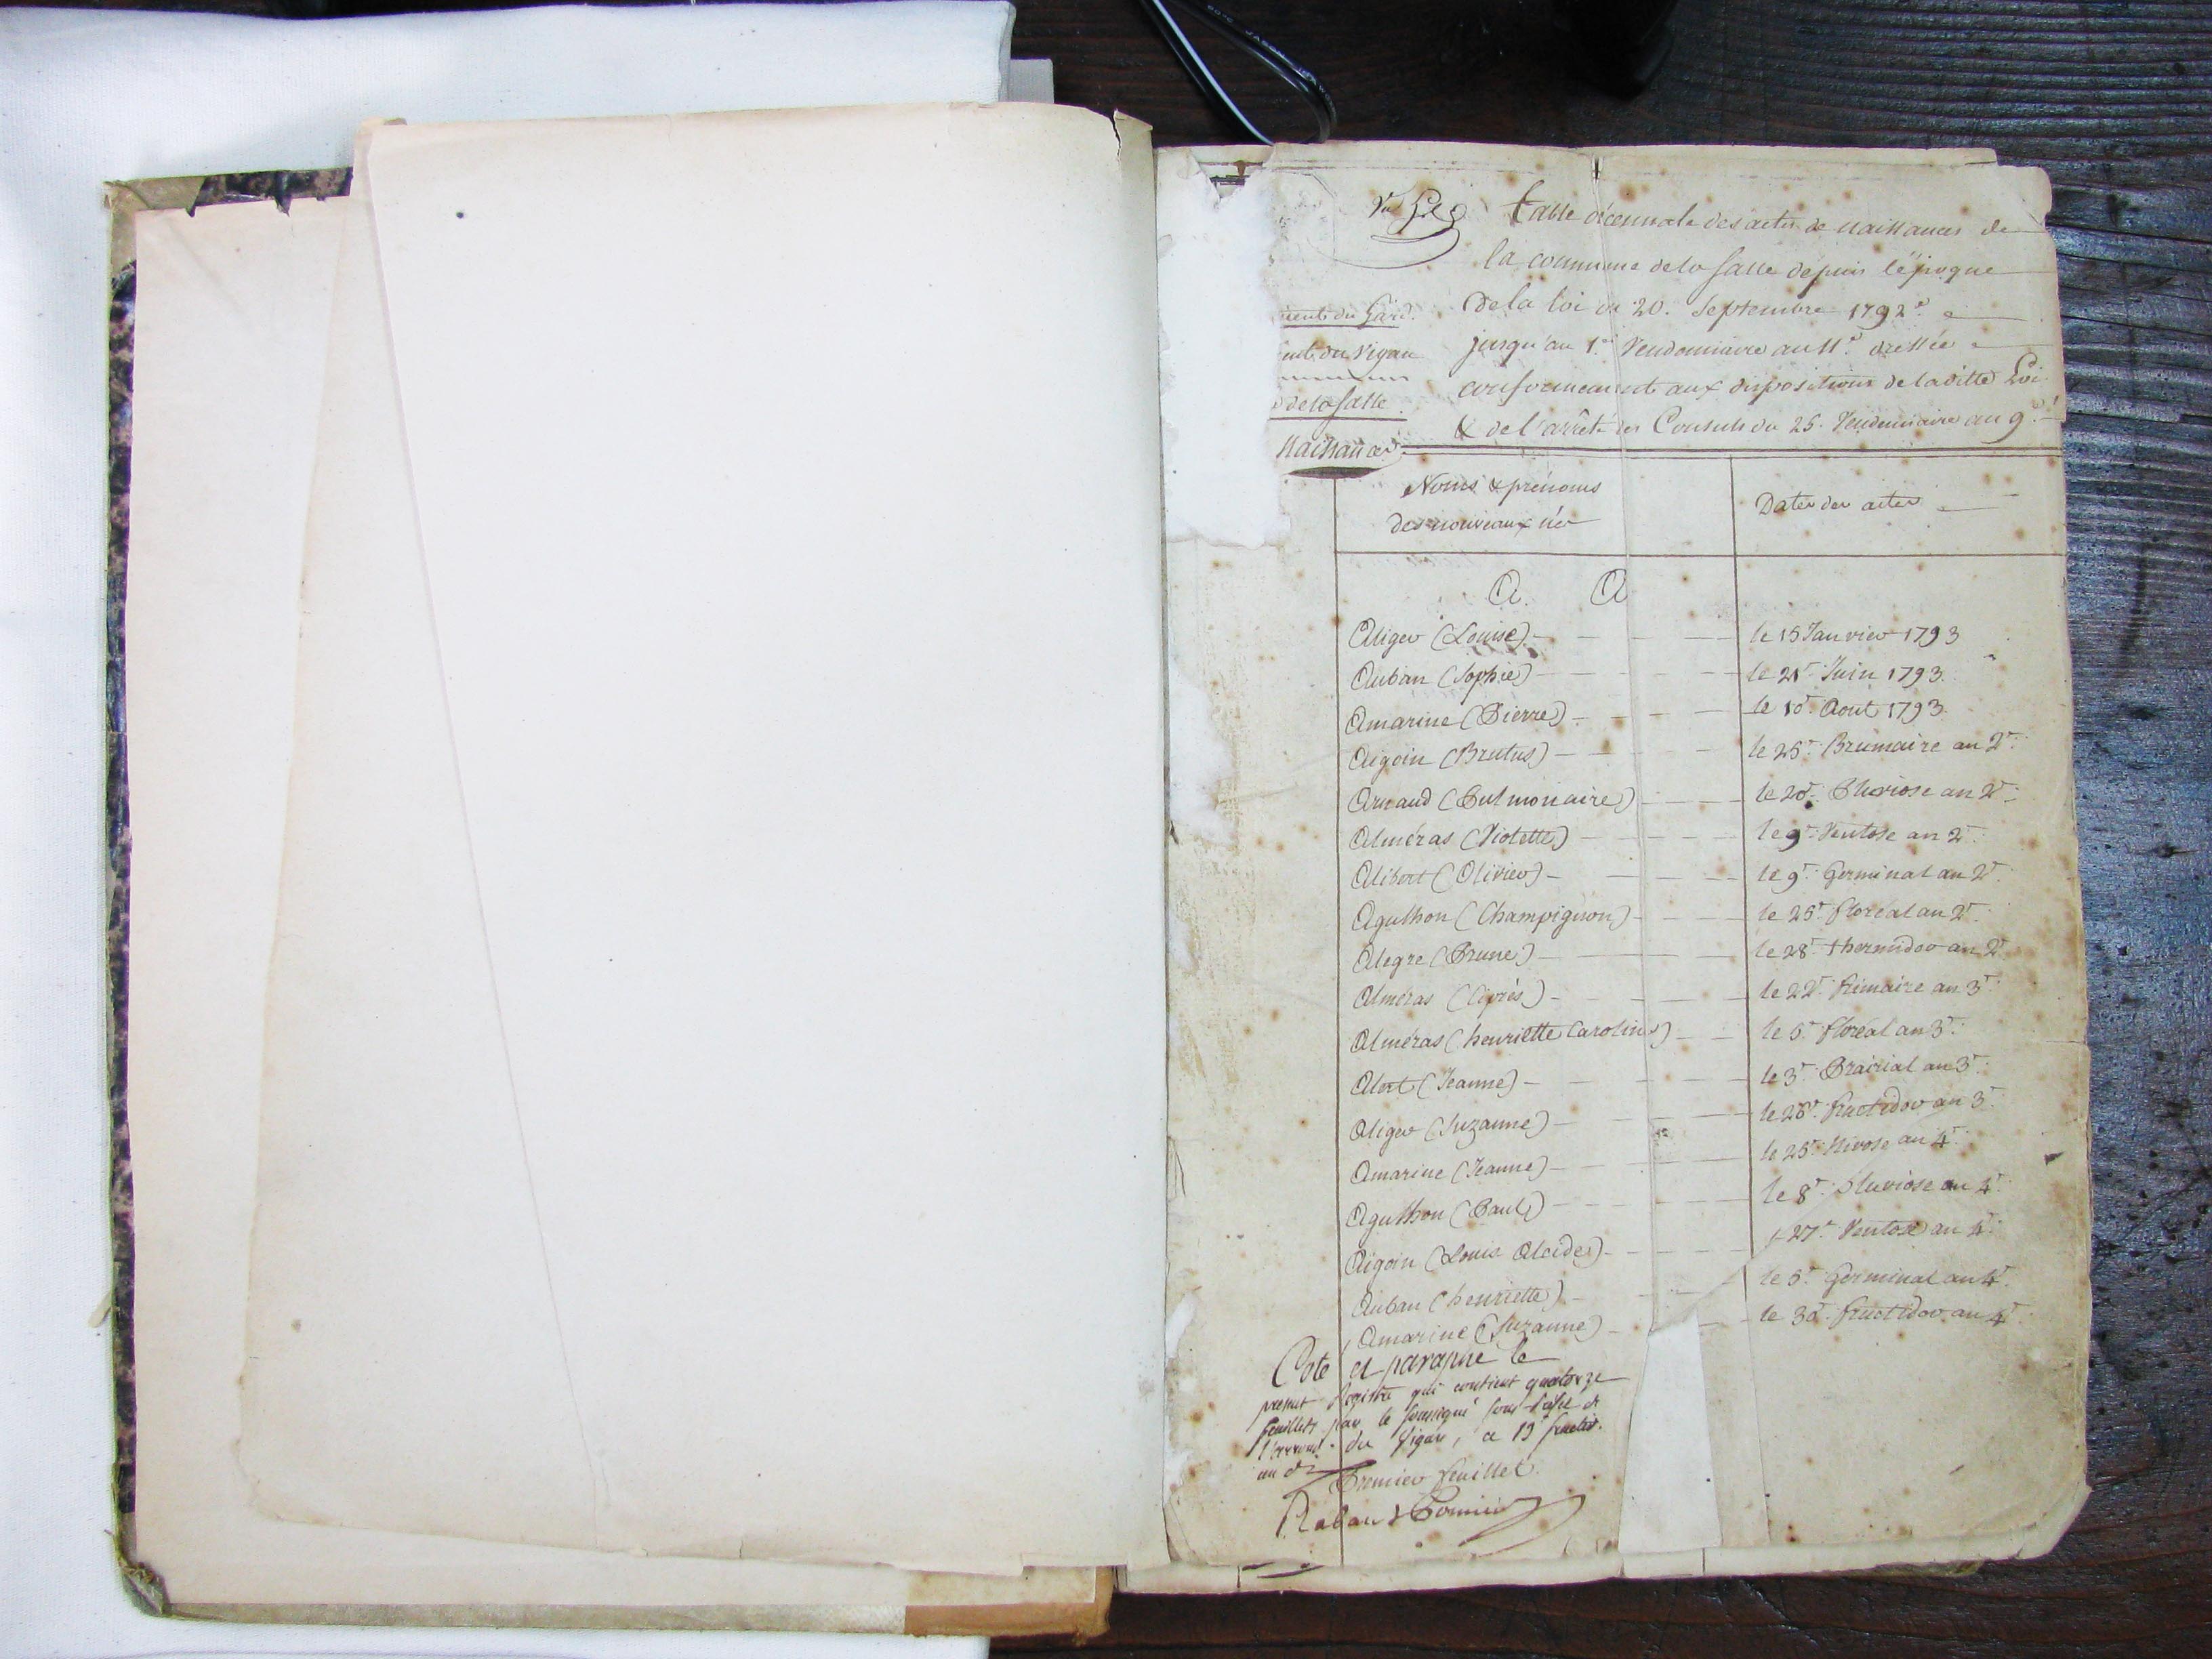 Vu
table décennale des actes de naissances de
la commune de la Salle depuis l'époque
de la loi du 20. Septembre 1792.e
jusqu'au 1.er Vendemiaire an 11.e dressée
conformement aux dispositions de laditte Loi
& de l'arrêté des Consuls du 25. Vendemiaire an 9.e
ment du Gard.
ent. du Vigan
de la Salle
Naissances
Noms & prénoms
des nouveaux nés
Dates des actes
A. A
Aliger (Louise) le 15 Janvier 1793
Auban (Sophie) le 21e Juin 1793.
Amarine (Pierre) le 10e Aout 1793
Aigoin (Brutus) le 25e Brumaire an 2e
Arnaud (Pulmonaire) le 20e Pluviose an 2e
Alméras (Violette) le 9e Ventose an 2e
Alibert (Olivier) le 9e Germinal an 2e
Agulhon (Champignon) le 25e floréal an 2e
Alegre (Prune) le 28e thermidor an 2e
Alméras (Ciprès) le 22e frimaire an 3e
Alméras (henriette Caroline) le 5e floréal an 3e
Alert (Jeanne) le 3e Prairial an 3e
Aliger (Suzanne) le 28e fructidor an 3e
Amarine (Jeanne) le 25e Nivose an 4e
Agulhon (Paul) le 8e pluviose an 4e
Aigoin (Louis Alcide) 27e Ventose an 4e
Auban (henriette) le 5e Germinal an 4e
Amarine (Suzanne) le 30e fructidor an 4e
Coté et paraphé le
present Registre qui contient quatorze
feuillets par le soussigné sous-préfet de
l'arrond. du Vigan, ce 13 fructid.
an
Premier feuillet.
Rabaut Pomier